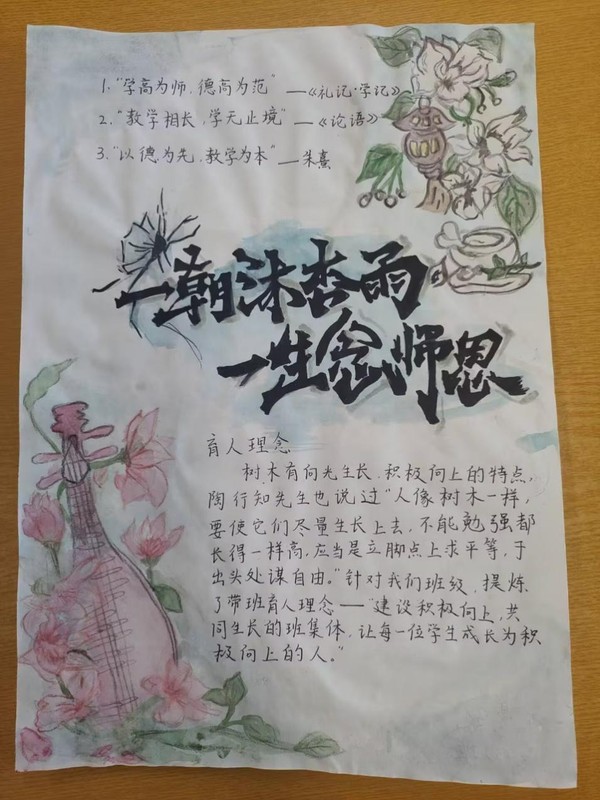 1. "学高为师，德高为范" —《礼记·学记》
2. "教学相长，学无止境" —《论语》
3. "以德为先，教学为本" — 朱熹
一朝沐杏雨
一生念师恩
育人理念
树木有向光生长，积极向上的特点，
陶行知先生也说过"人像树木一样，
要使它们尽量生长上去，不能勉强都
长得一样高，应当是立脚点上求平等，于
出头处谋自由。"针对我们班级，提炼
了带班育人理念——"建设积极向上，共
同生长的班集体，让每一位学生成长为积
极向上的人。"